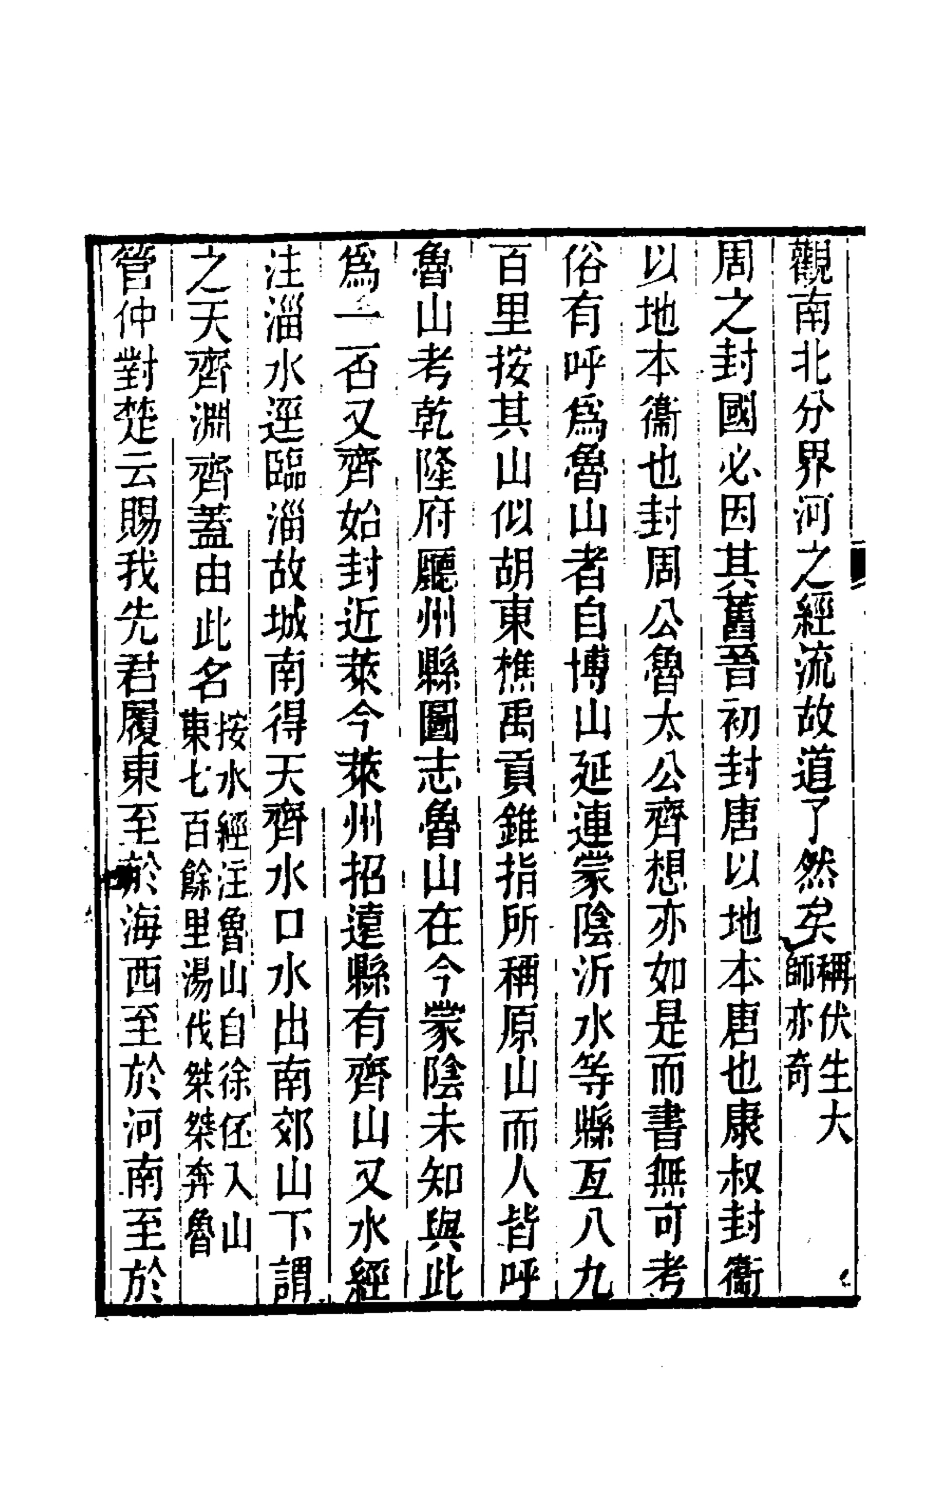 觀南北分界河之經流故道了然矣稱伏生大師亦奇
周之封國必因其舊晉初封唐以地本唐也康叔封衞
以地本衞也封周公魯太公齊想亦如是而書無可考
俗有呼爲魯山者自博山延連蒙陰沂水等縣亙八九
百里按其山似胡東樵禹貢錐指所稱原山而人皆呼
魯山考乾隆府廳州縣圖志魯山在今蒙陰未知與此
爲一否又齊始封近萊今萊州招遠縣有齊山又水經
注淄水逕臨淄故城南得天齊水口水出南郊山下謂
之天齊淵齊蓋由此名按水經注魯山自徐伾入山東七百餘里湯伐桀桀奔魯
管仲對楚云賜我先君履東至於海西至於河南至於